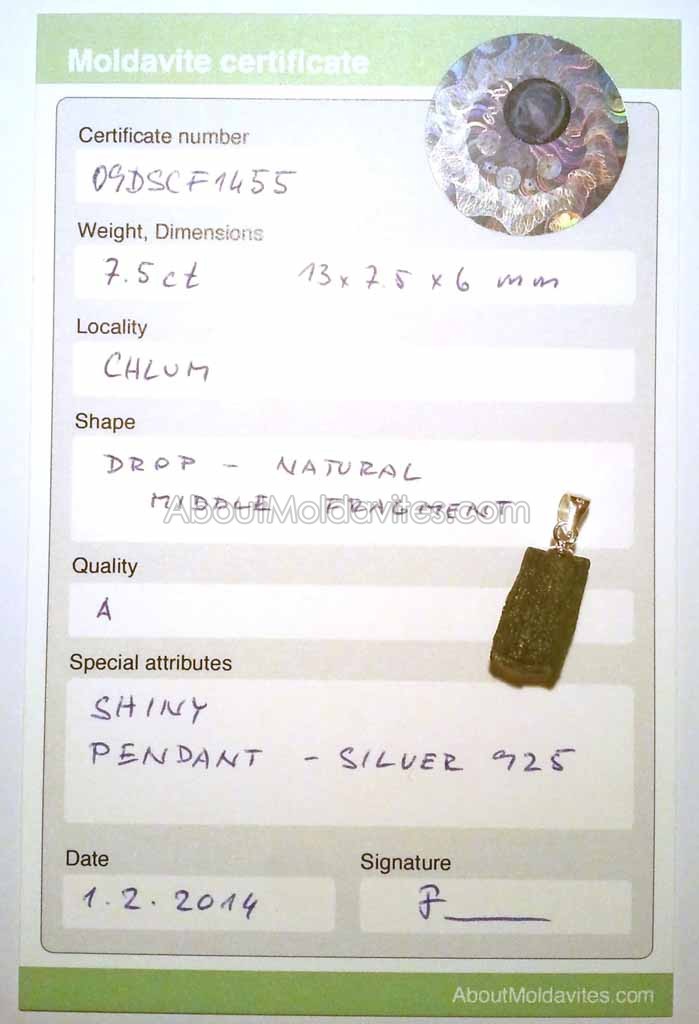 Moldavite certificate
Certificate number
09DSCF1455
Weight, Dimensions
7.5 ct 13 x 7.5 x 6 mm
Locality
CHLUM
Shape
DROP - NATURAL
MIDDLE FRAGMENT
AboutMoldavites.com
Quality
A
Special attributes
SHINY
PENDANT - SILVER 925
Date
Signature
1.2.2014
AboutMoldavites.com